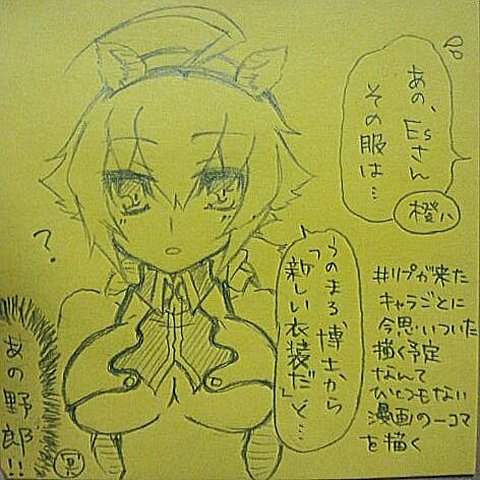 あの、Esさん
その服は…
橙ハ
?
うのまる博士から
「新しい衣装だ」と…
あの野郎!!
#リプが来た
キャラごとに
今思いついた
描く予定
なんて
ひとつもない
漫画の一コマ
を描く